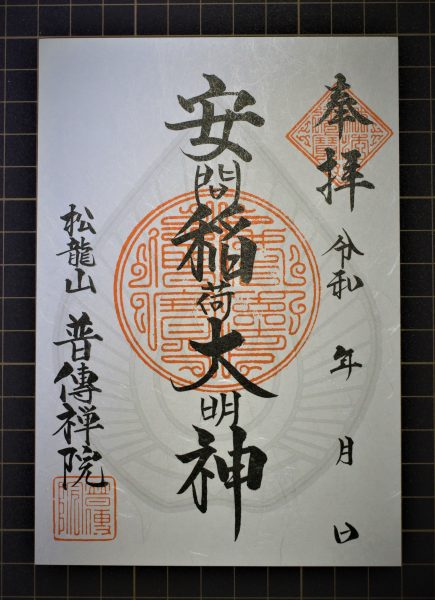 奉拝
令和 年 月 日
安閇稲荷大明神
松龍山
普傳禅院
普傳